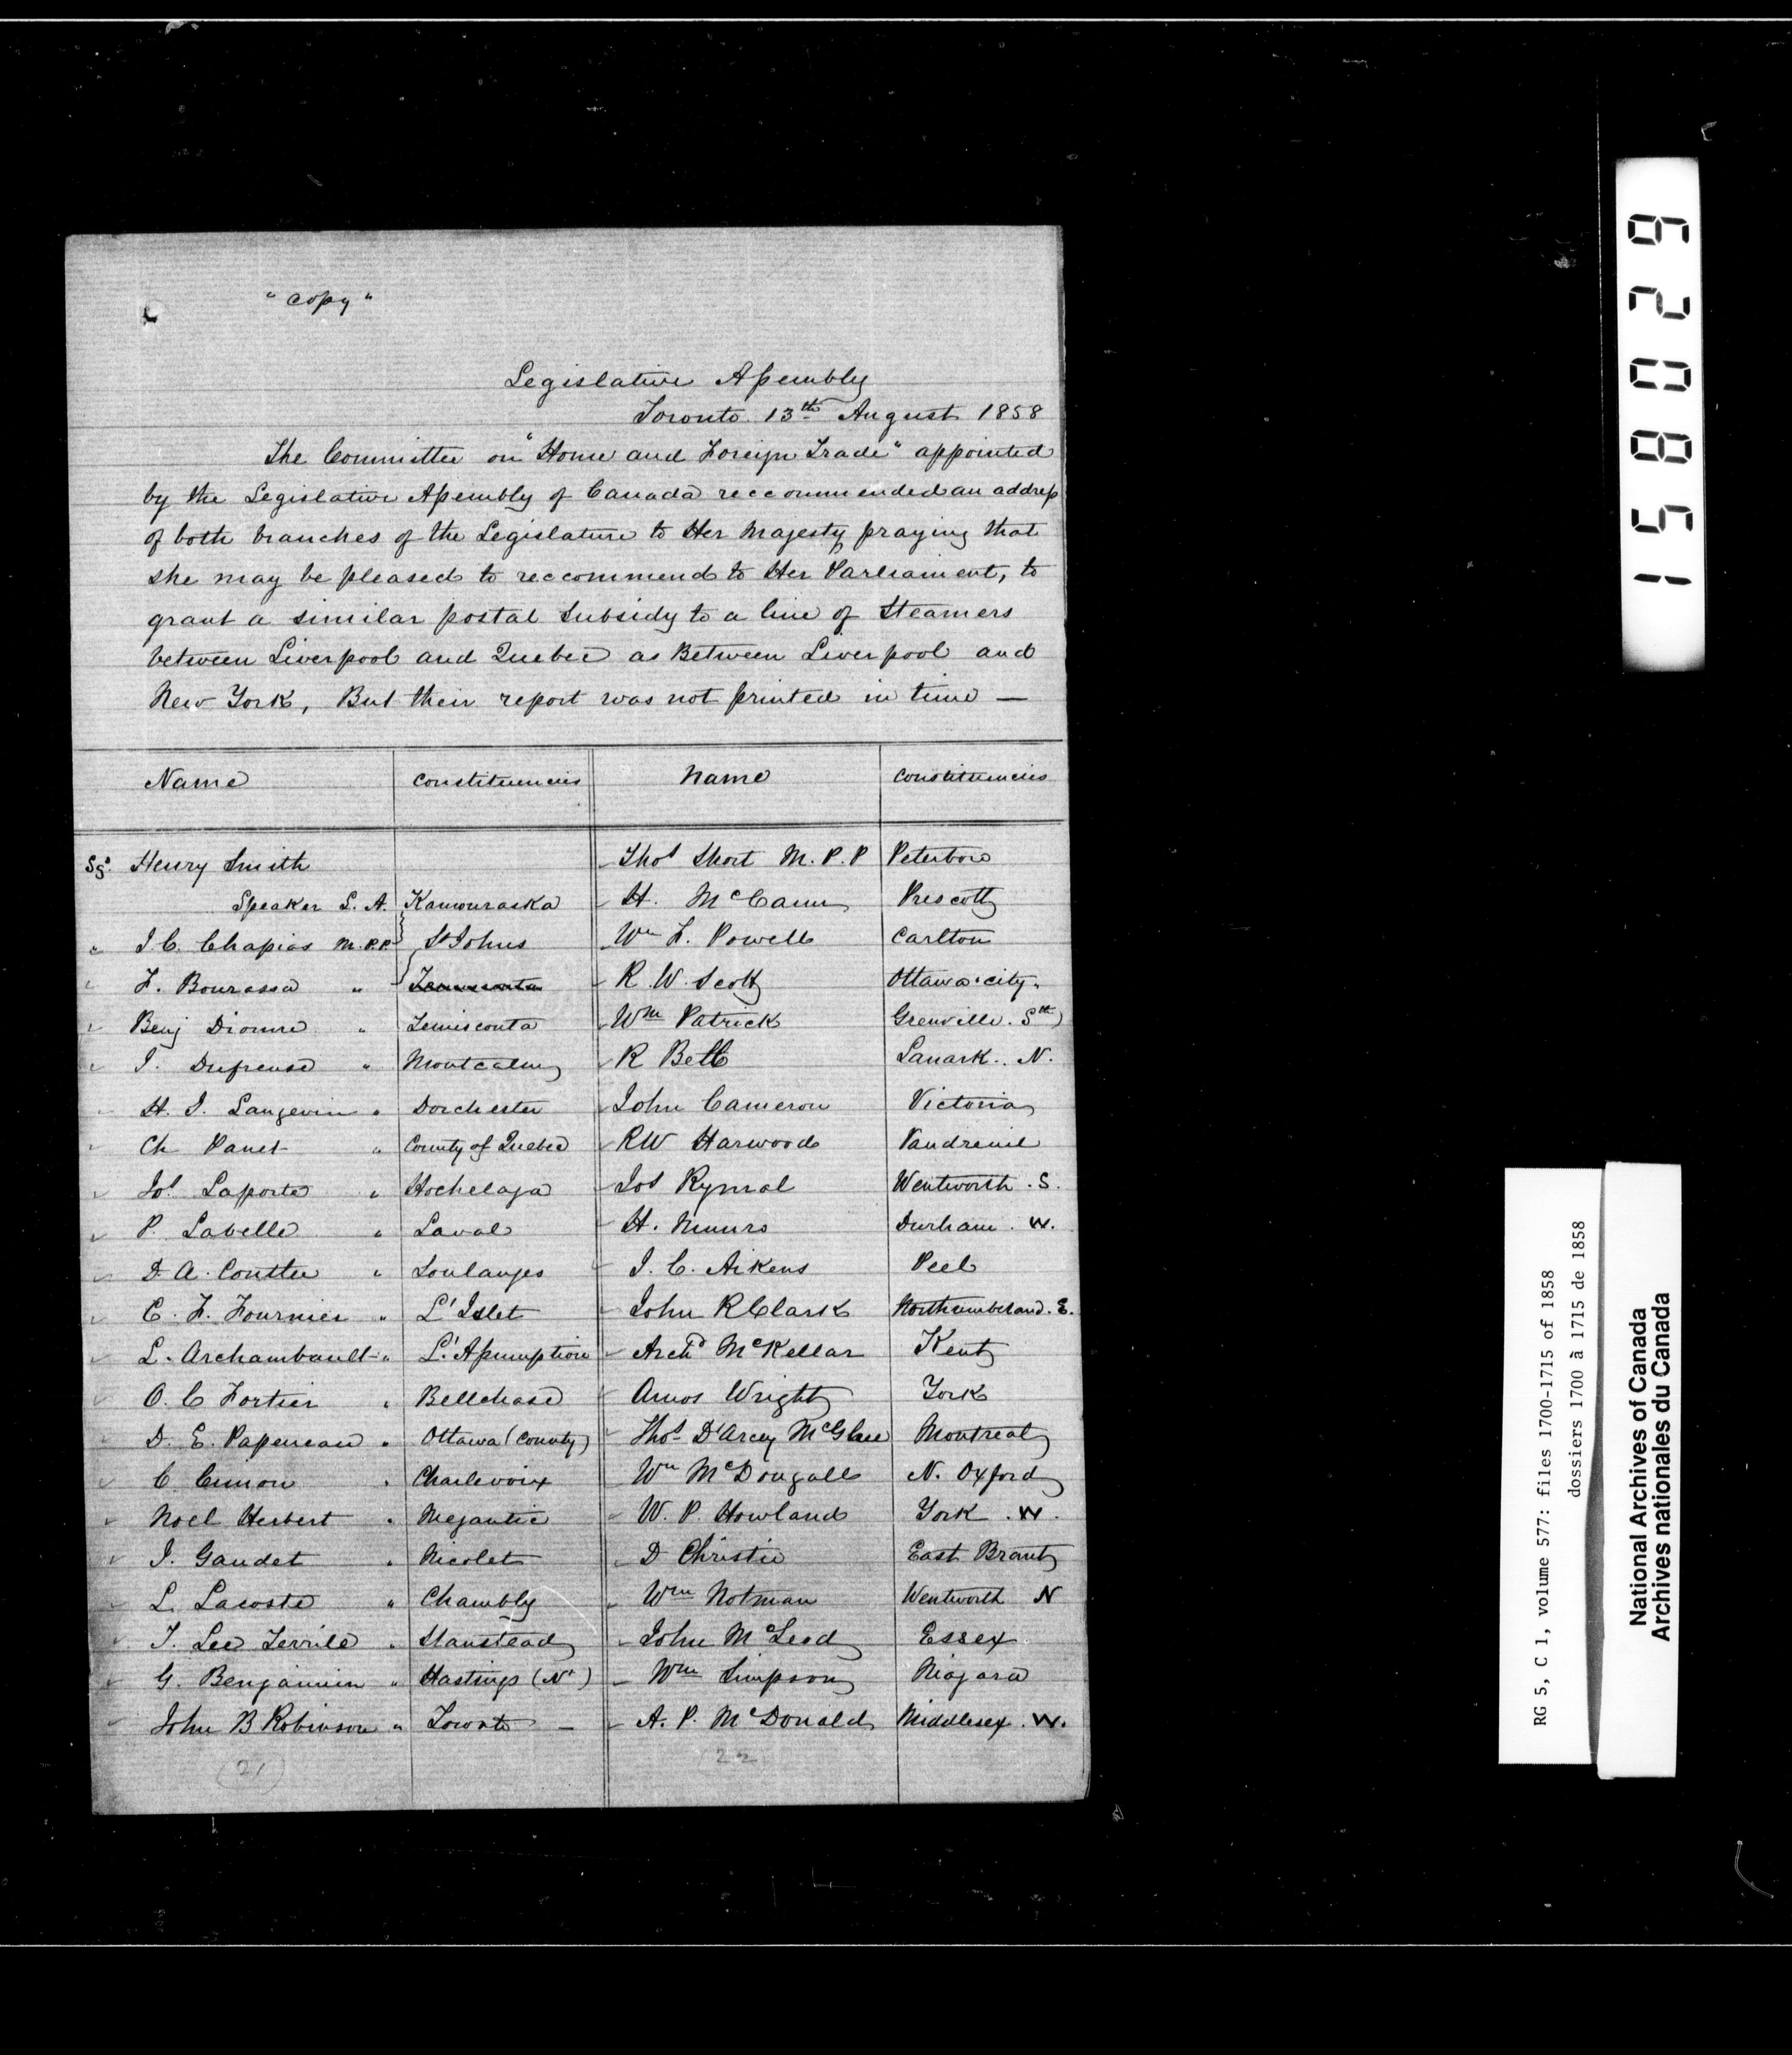 " Copy "
Legislative Assembly
Toronto 13th August 1858
The Committee on "Home and Foreign Trade" appointed
by the Legislative Assembly of Canada reccommended an address
of both branches of the Legislature to Her Majesty praying that
she may be pleased to reccommend to Her Parliament, to
grant a similar postal Subsidy to a line of Steamers
between Liverpool and Quebec as Between Liverpool and
New York, But their report was not printed in time —
Name Constituencies Name Constituencies
Sgd Henry Smith Thos Short M.P.P Peterboro
Speaker L. A. Kamouraska H. McCann Prescott
" J. C. Chapias M.P.P. St Johns Wm F. Powell Carlton
F. Bourassa " Temisconta R. W. Scott Ottawa city.
Benj Dionne " Temisconta Wm Patrick Grenville. Sth
J. Dufrense " Montcalm R Bell Lanark. N.
H. L. Langevin " Dorchester John Cameron Victoria
Ch Panet " County of Quebec RW Harwood Vaudreuil
Jos Laporte " Hochelaga Jos Rymal Wentworth. S.
P. Labelle " Laval H. Munro Durham. W.
D. A. Couttee " Soulanges J. C. Aikens Peel
C. F. Fournier " L'Islet John R Clark Northumberland. E.
L. Archambault " L'Assumption Archd McKellar Kent
O. C Fortier " Bellchase Amos Wright York
D. E. Papeneau " Ottawa (County) Thos D'Arcy McGhee Montreal
C Cimon " Charlevoix Wm McDougall N. Oxford
Noel Herbert " Megantic W. P. Howland York. W.
J. Gaudet " Nicolet D Christie East Brant
L. Lacoste " Chambly Wm Notman Wentworth N
T. Lee Terrile " Stanstead John McLeod Essex
G. Benjamin " Hastings (Nh) Wm Simpson Niagara
John B Robinson " Toronto — A. P. McDonald Middlesex. W.
(21) (22
158029
RG 5, C 1, volume 577: files 1700-1715 of 1858
dossiers 1700 à 1715 de 1858
National Archives of Canada
Archives nationales du Canada